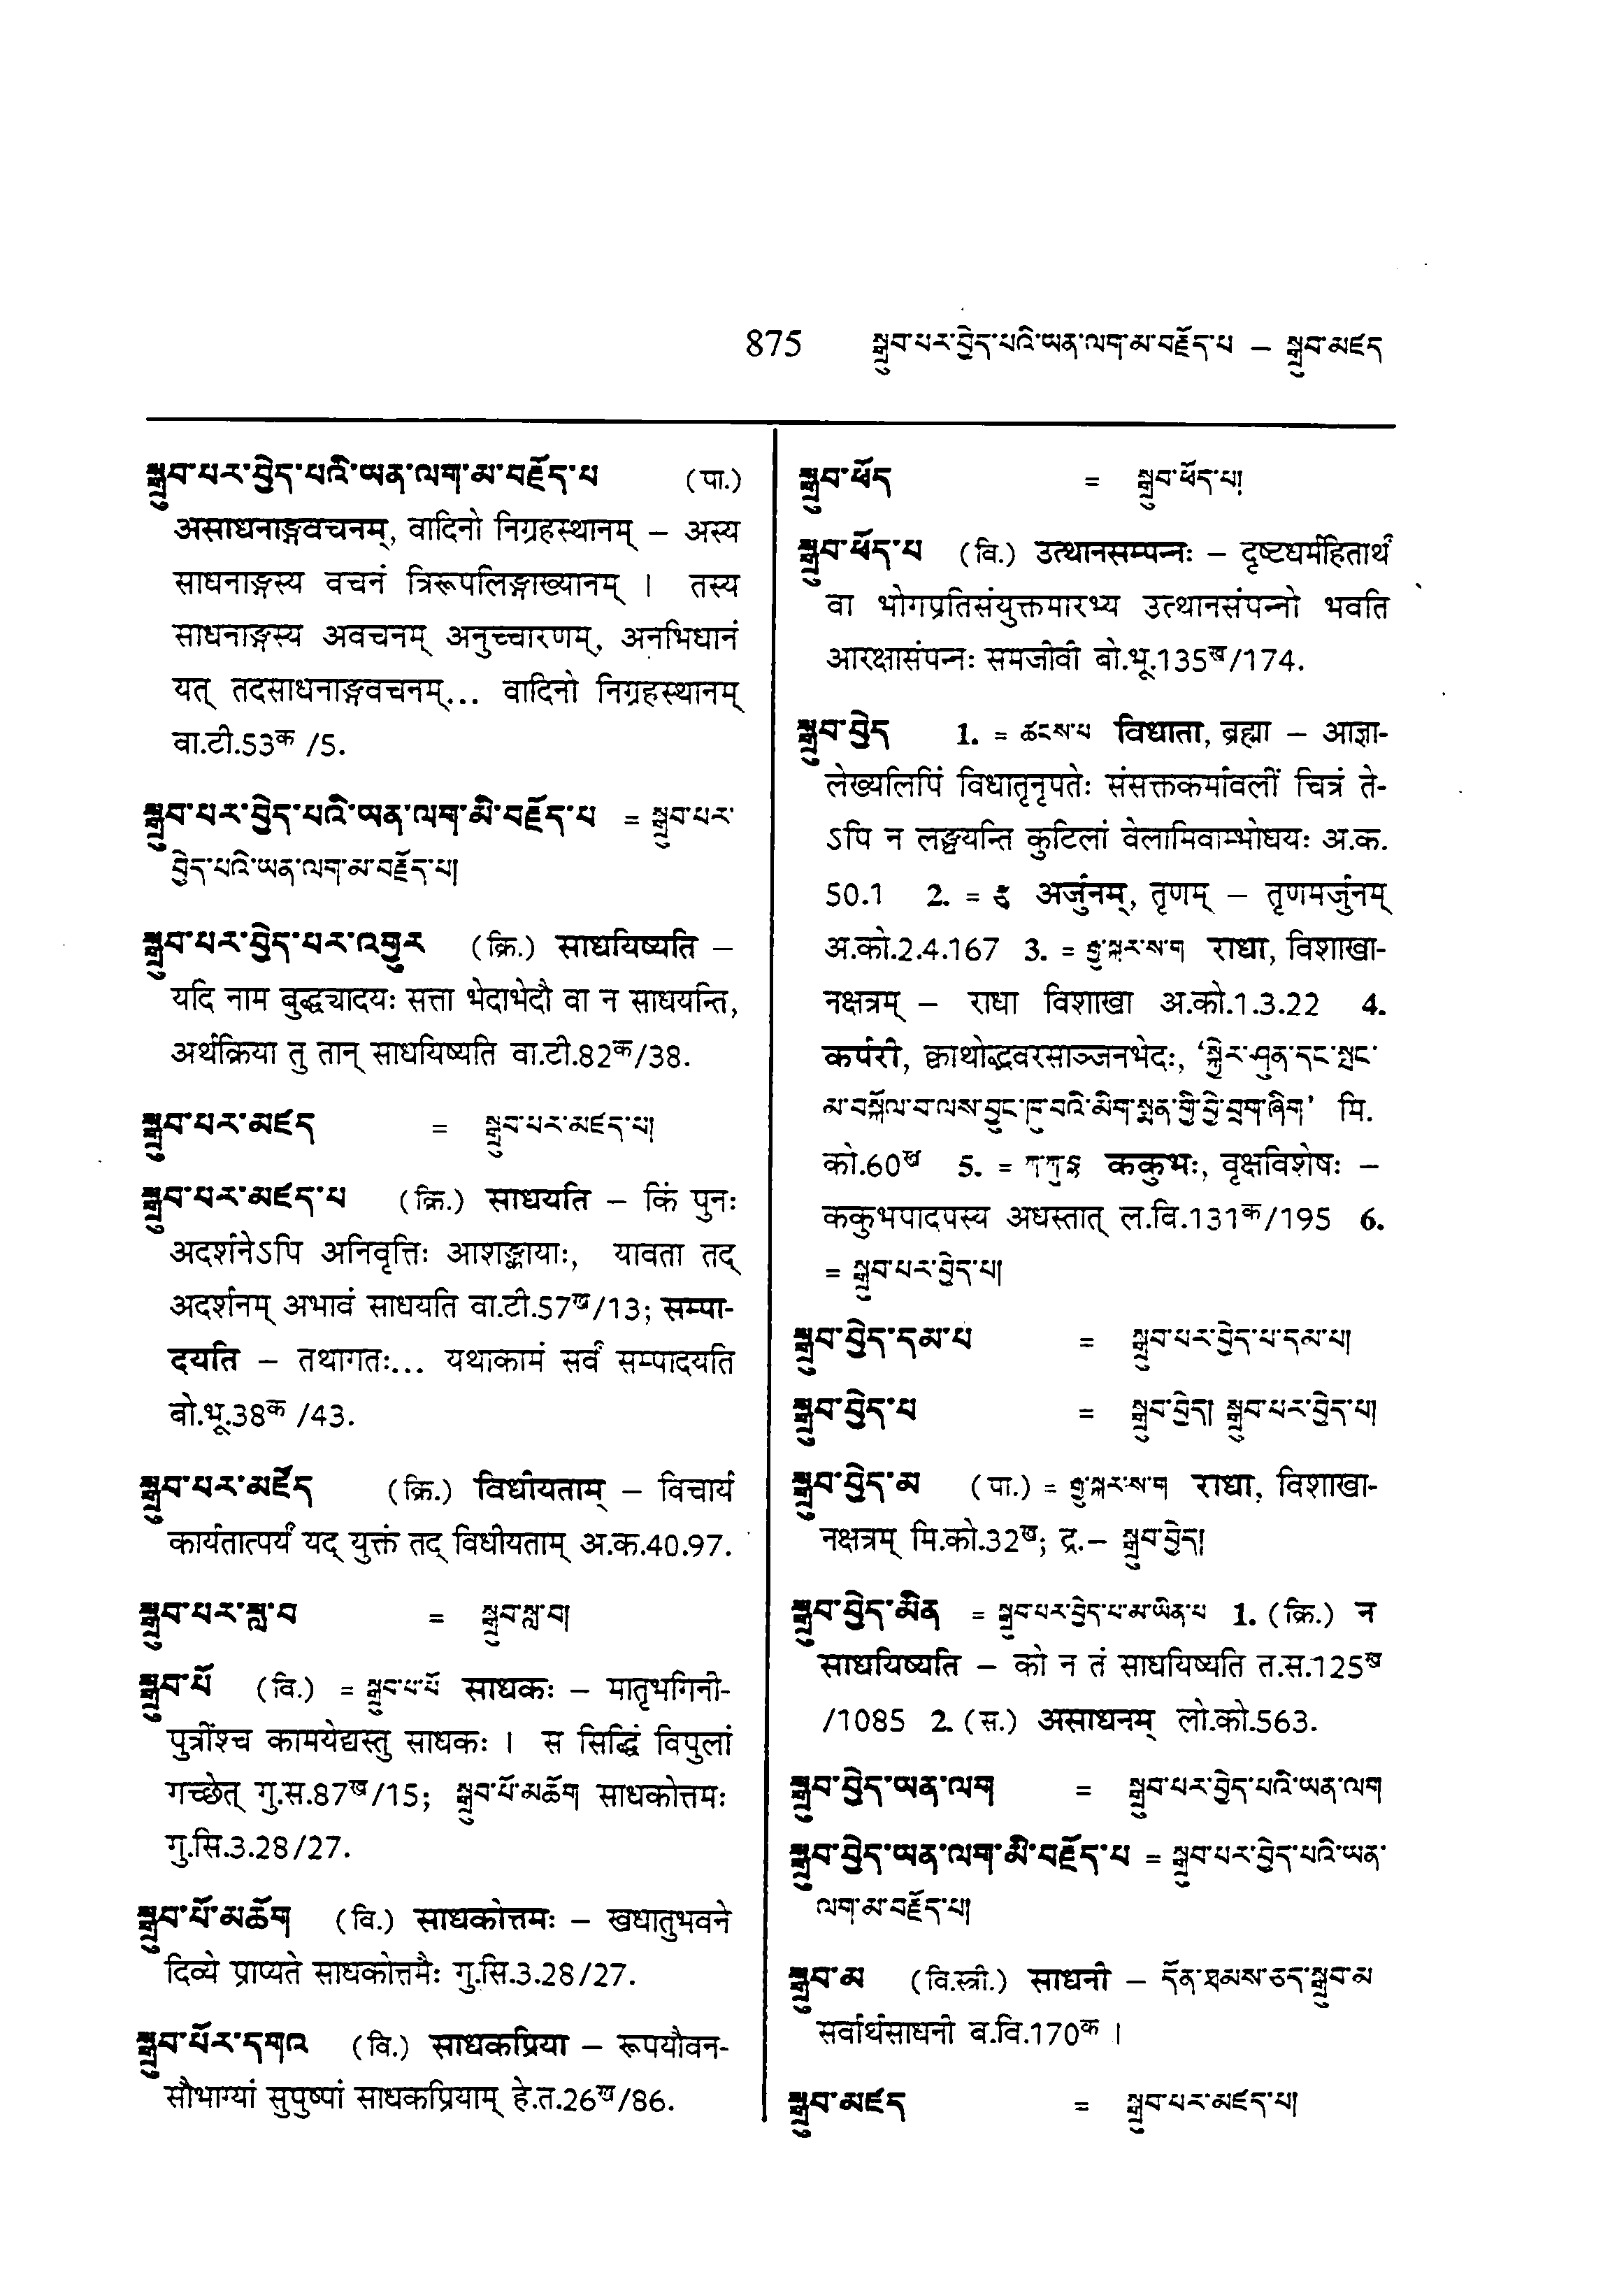 875 སྒྲུབ་པར་བྱེད་པའི་ཡན་ལག་མ་བརྗོད་པ – སྒྲུབ་མཛད
སྒྲུབ་པར་བྱེད་པའི་ཡན་ལག་མ་བརྗོད་པ (पा.)
असाधनाङ्गवचनम्, वादिनो निग्रहस्थानम् – अस्य
साधनाङ्गस्य वचनं त्रिरूपलिङ्गाख्यानम् । तस्य
साधनाङ्गस्य अवचनम् अनुच्चारणम्, अनभिधानं
यत् तदसाधनाङ्गवचनम्... वादिनो निग्रहस्थानम्
वा.टी.53क /5.
སྒྲུབ་པར་བྱེད་པའི་ཡན་ལག་མི་བརྗོད་པ = སྒྲུབ་པར་
བྱེད་པའི་ཡན་ལག་མ་བརྗོད་པ།
སྒྲུབ་པར་བྱེད་པར་འགྱུར (क्रि.) साधयिष्यति –
यदि नाम बुद्ध्यादयः सत्ता भेदाभेदौ वा न साधयन्ति,
अर्थक्रिया तु तान् साधयिष्यति वा.टी.82क/38.
སྒྲུབ་པར་མཛད = སྒྲུབ་པར་མཛད་པ།
སྒྲུབ་པར་མཛད་པ (क्रि.) साधयति – किं पुनः
अदर्शनेऽपि अनिवृत्तिः आशङ्कायाः, यावता तद्
अदर्शनम् अभावं साधयति वा.टी.57ख/13; सम्पा-
दयति – तथागतः... यथाकामं सर्वं सम्पादयति
बो.भू.38क /43.
སྒྲུབ་པར་མཛོད (क्रि.) विधीयताम् – विचार्य
कार्यतात्पर्यं यद् युक्तं तद् विधीयताम् अ.क.40.97.
སྒྲུབ་པར་སླ་བ = སྒྲུབ་སླ་བ།
སྒྲུབ་པོ (वि.) = སྒྲུབ་པ་པོ साधकः – मातृभगिनी-
पुत्रींश्च कामयेद्यस्तु साधकः । स सिद्धिं विपुलां
गच्छेत् गु.स.87ख/15; སྒྲུབ་པོ་མཆོག साधकोत्तमः
गु.सि.3.28/27.
སྒྲུབ་པོ་མཆོག (वि.) साधकोत्तमः – खधातुभवने
दिव्ये प्राप्यते साधकोत्तमैः गु.सि.3.28/27.
སྒྲུབ་པོར་དགའ (वि.) साधकप्रिया – रूपयौवन-
सौभाग्यां सुपुष्पां साधकप्रियाम् हे.त.26ख/86.
སྒྲུབ་ཕོད = སྒྲུབ་ཕོད་པ།
སྒྲུབ་ཕོད་པ (वि.) उत्थानसम्पन्नः – दृष्टधर्महितार्थं
वा भोगप्रतिसंयुक्तमारभ्य उत्थानसंपन्नो भवति
आरक्षासंपन्नः समजीवी बो.भू.135ख/174.
སྒྲུབ་བྱེད 1. = ཚངས་པ विधाता, ब्रह्मा – आज्ञा-
लेख्यलिपिं विधातृनृपतेः संसक्तकर्मावलीं चित्रं ते-
ऽपि न लङ्घयन्ति कुटिलां वेलामिवाम्भोधयः अ.क.
50.1 2. = རྩྭ अर्जुनम्, तृणम् – तृणमर्जुनम्
अ.को.2.4.167 3. = རྒྱུ་སྐར་ས་ག राधा, विशाखा-
नक्षत्रम् – राधा विशाखा अ.को.1.3.22 4.
कर्परी, क्वाथोद्भवरसाञ्जनभेदः, ‘སྐྱེར་ཤུན་དང་སྦྲང་
མ་བསྐོལ་བ་ལས་བྱུང་ཁུ་བའི་མིག་སྨན་གྱི་བྱེ་བྲག་ཞིག’ मि.
को.60ख 5. = ཀ་ཀུ་བྷ ककुभः, वृक्षविशेषः –
ककुभपादपस्य अधस्तात् ल.वि.131क/195 6.
= སྒྲུབ་པར་བྱེད་པ།
སྒྲུབ་བྱེད་དམ་པ = སྒྲུབ་པར་བྱེད་པ་དམ་པ།
སྒྲུབ་བྱེད་པ = སྒྲུབ་བྱེད། སྒྲུབ་པར་བྱེད་པ།
སྒྲུབ་བྱེད་མ (पा.) = རྒྱུ་སྐར་ས་ག राधा, विशाखा-
नक्षत्रम् मि.को.32ख; द्र.– སྒྲུབ་བྱེད།
སྒྲུབ་བྱེད་མིན = སྒྲུབ་པར་བྱེད་པ་མ་ཡིན་པ 1. (क्रि.) न
साधयिष्यति – को न तं साधयिष्यति त.स.125ख
/1085 2. (स.) असाधनम् लो.को.563.
སྒྲུབ་བྱེད་ཡན་ལག = སྒྲུབ་པར་བྱེད་པའི་ཡན་ལག
སྒྲུབ་བྱེད་ཡན་ལག་མི་བརྗོད་པ = སྒྲུབ་པར་བྱེད་པའི་ཡན་
ལག་མ་བརྗོད་པ།
སྒྲུབ་མ (वि.स्त्री.) साधनी – དོན་ཐམས་ཅད་སྒྲུབ་མ
सर्वार्थसाधनी ब.वि.170क ।
སྒྲུབ་མཛད = སྒྲུབ་པར་མཛད་པ།